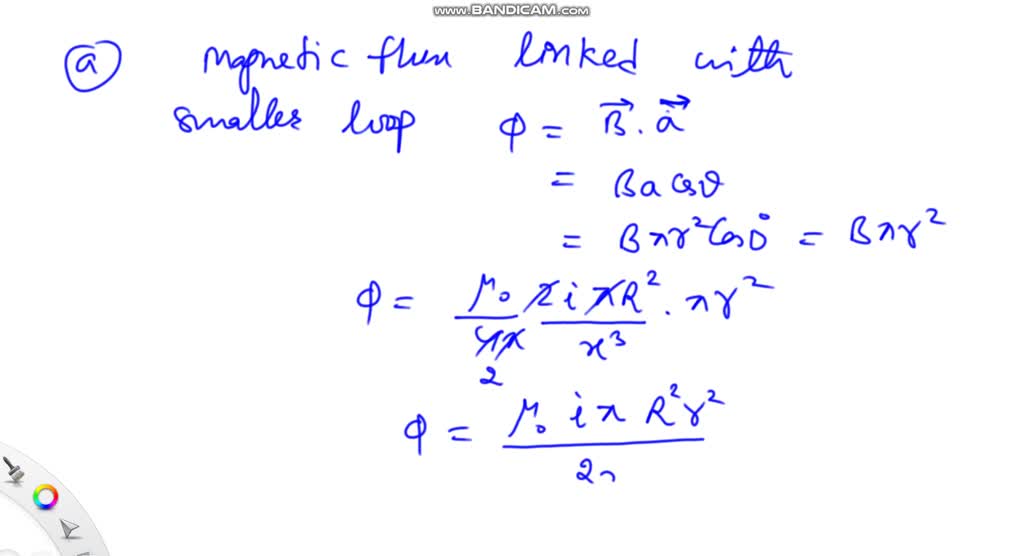 www.BANDICAM.com
(a) magnetic flux linked with
smaller loop ϕ = B⃗ . a⃗
= Ba cosθ
= Bπr²Cos0° = Bπr²
ϕ = μ₀/4π 2iπR²/x³ . πr²
2
ϕ = μ₀ iπ R²r² / 2